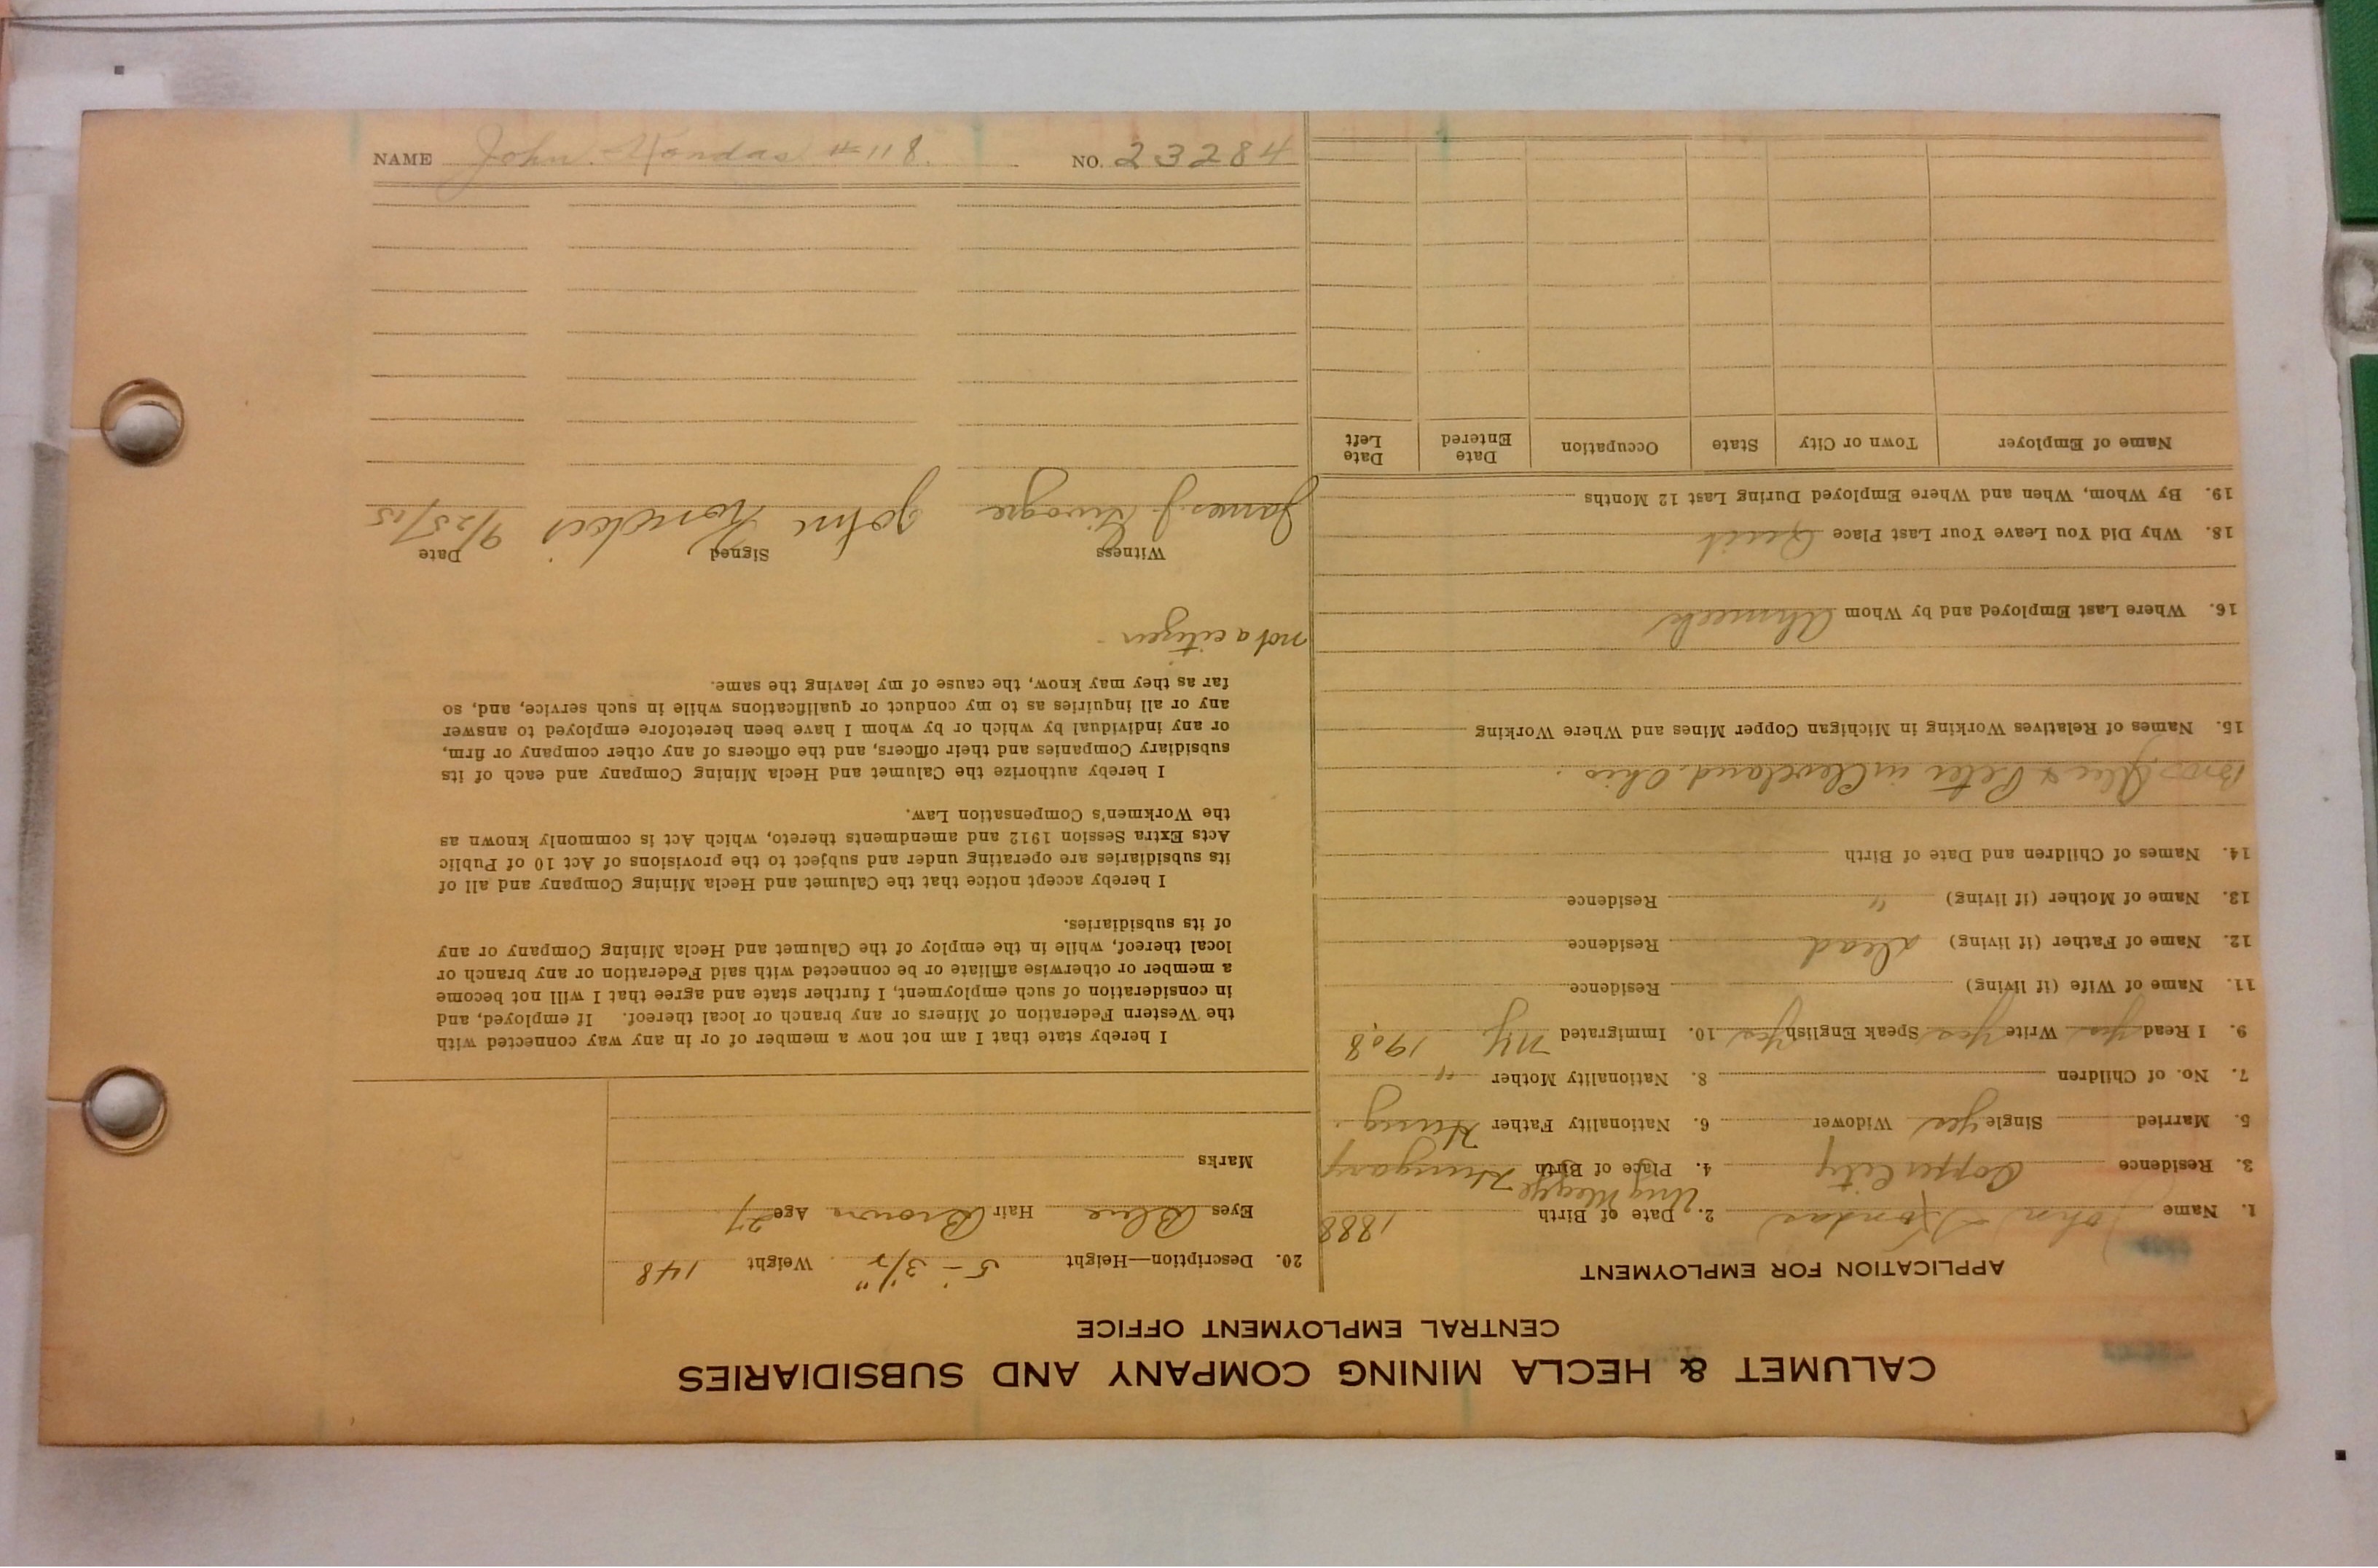 CALUMET & HECLA MINING COMPANY AND SUBSIDIARIES
CENTRAL EMPLOYMENT OFFICE
APPLICATION FOR EMPLOYMENT
1. Name John Kondas 2. Date of Birth 1888
Ung Megye
3. Residence Copper City 4. Place of Birth Hungary
5. Married Single yes Widower 6. Nationality Father Hung.
7. No. of Children 8. Nationality Mother "
9. I Read yes Write yes Speak English yes 10. Immigrated NY 1908
11. Name of Wife (if living) Residence
12. Name of Father (if living) dead Residence
13. Name of Mother (if living) " Residence
14. Names of Children and Date of Birth
Bros. & Peter in Cleveland. Ohio.
15. Names of Relatives Working in Michigan Copper Mines and Where Working
16. Where Last Employed and by Whom Ahmeek
18. Why Did You Leave Your Last Place Quit
19. By Whom, When and Where Employed During Last 12 Months
Name of Employer Town or City State Occupation Date Entered Date Left
20. Description—Height 5'-3½" Weight 148
Eyes Blue Hair Brown Age 27
Marks
I hereby state that I am not now a member of or in any way connected with
the Western Federation of Miners or any branch or local thereof. If employed, and
in consideration of such employment, I further state and agree that I will not become
a member or otherwise affiliate or be connected with said Federation or any branch or
local thereof, while in the employ of the Calumet and Hecla Mining Company or any
of its subsidiaries.
I hereby accept notice that the Calumet and Hecla Mining Company and all of
its subsidiaries are operating under and subject to the provisions of Act 10 of Public
Acts Extra Session 1912 and amendments thereto, which Act is commonly known as
the Workmen's Compensation Law.
I hereby authorize the Calumet and Hecla Mining Company and each of its
subsidiary Companies and their officers, and the officers of any other company or firm,
or any individual by which or by whom I have been heretofore employed to answer
any or all inquiries as to my conduct or qualifications while in such service, and, so
far as they may know, the cause of my leaving the same.
not a citizen
Witness Signed Date
James J. John Kondas 9/25/15
NAME John Kondas #118. NO. 23284